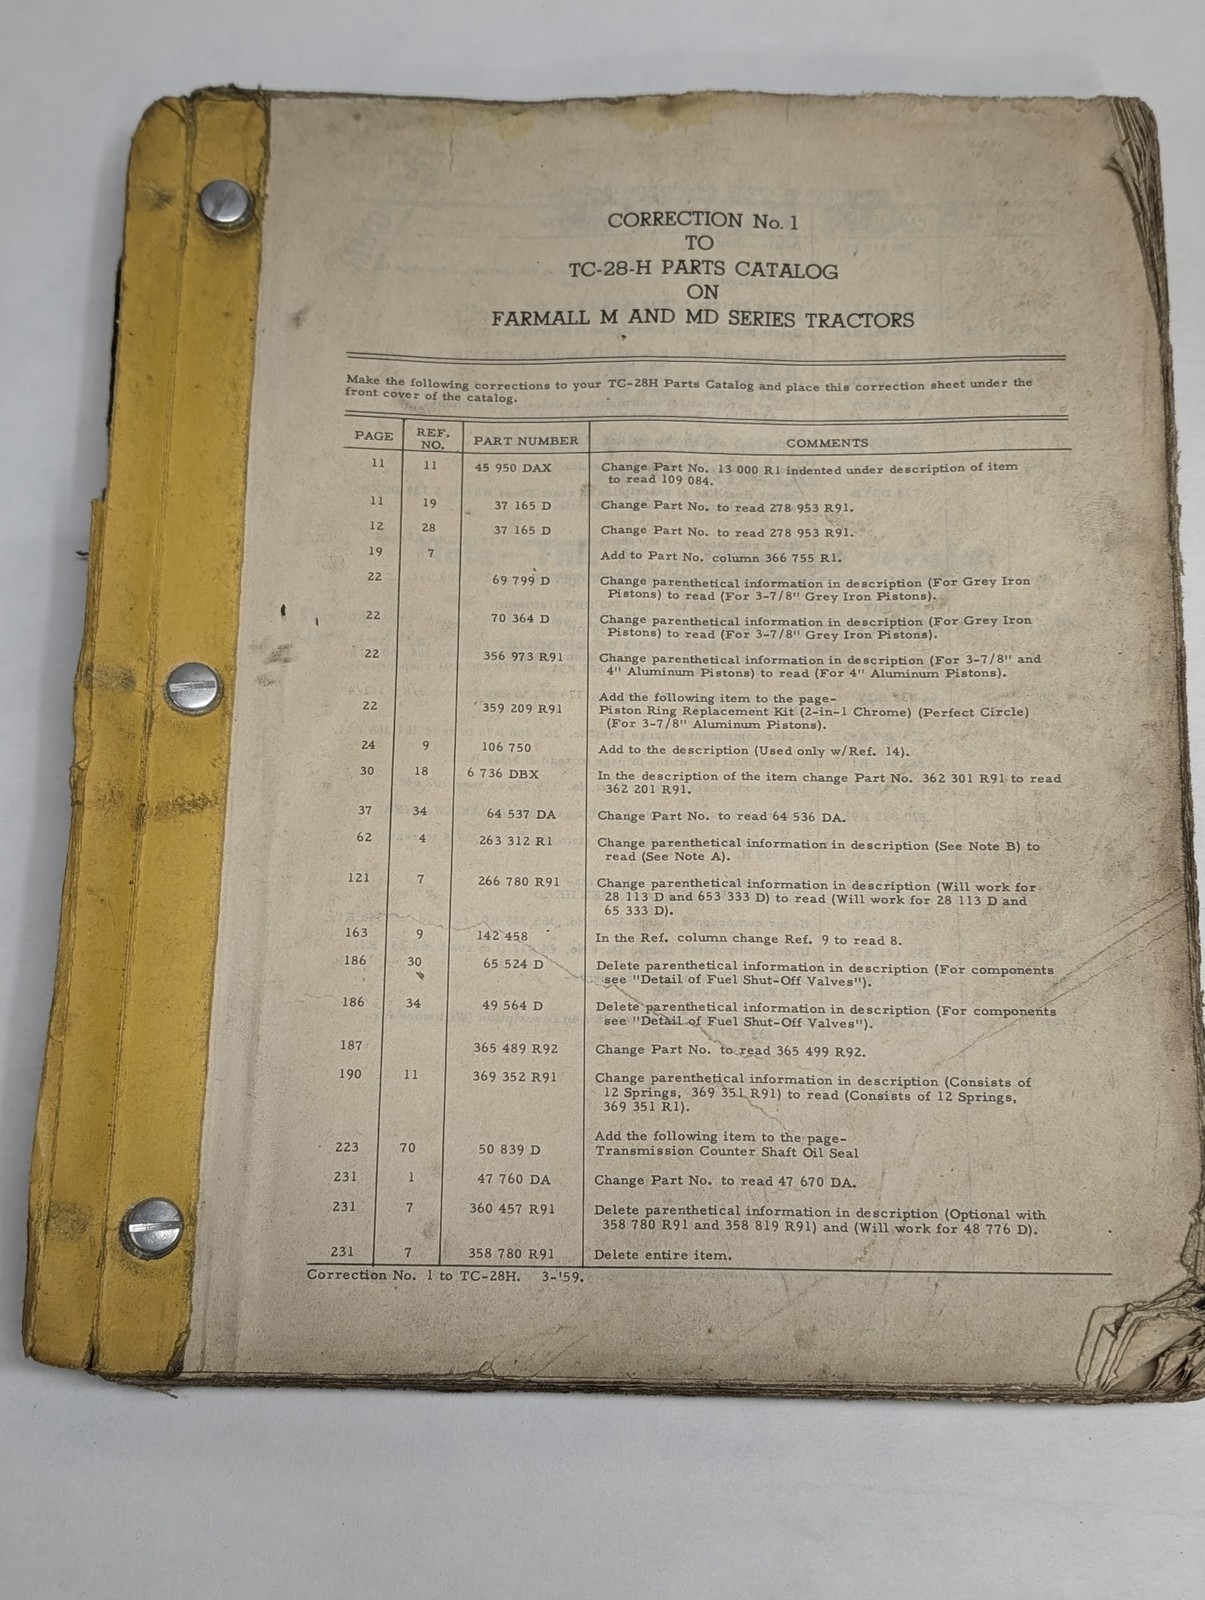 CORRECTION No. 1
TO
TC-28-H PARTS CATALOG
ON
FARMALL M AND MD SERIES TRACTORS
Make the following corrections to your TC-28H Parts Catalog and place this correction sheet under the
front cover of the catalog.
PAGE REF. NO. PART NUMBER COMMENTS
11 11 45 950 DAX Change Part No. 13 000 R1 indented under description of item
to read 109 084.
11 19 37 165 D Change Part No. to read 278 953 R91.
12 28 37 165 D Change Part No. to read 278 953 R91.
19 7 Add to Part No. column 366 755 R1.
22 69 799 D Change parenthetical information in description (For Grey Iron
Pistons) to read (For 3-7/8" Grey Iron Pistons).
22 70 364 D Change parenthetical information in description (For Grey Iron
Pistons) to read (For 3-7/8" Grey Iron Pistons).
22 356 973 R91 Change parenthetical information in description (For 3-7/8" and
4" Aluminum Pistons) to read (For 4" Aluminum Pistons).
Add the following item to the page-
22 359 209 R91 Piston Ring Replacement Kit (2-in-1 Chrome) (Perfect Circle)
(For 3-7/8" Aluminum Pistons).
24 9 106 750 Add to the description (Used only w/Ref. 14).
30 18 6 736 DBX In the description of the item change Part No. 362 301 R91 to read
362 201 R91.
37 34 64 537 DA Change Part No. to read 64 536 DA.
62 4 263 312 R1 Change parenthetical information in description (See Note B) to
read (See Note A).
121 7 266 780 R91 Change parenthetical information in description (Will work for
28 113 D and 653 333 D) to read (Will work for 28 113 D and
65 333 D).
163 9 142 458 In the Ref. column change Ref. 9 to read 8.
186 30 65 524 D Delete parenthetical information in description (For components
see "Detail of Fuel Shut-Off Valves").
186 34 49 564 D Delete parenthetical information in description (For components
see "Detail of Fuel Shut-Off Valves").
187 365 489 R92 Change Part No. to read 365 499 R92.
190 11 369 352 R91 Change parenthetical information in description (Consists of
12 Springs, 369 351 R91) to read (Consists of 12 Springs,
369 351 R1).
Add the following item to the page-
223 70 50 839 D Transmission Counter Shaft Oil Seal
231 1 47 760 DA Change Part No. to read 47 670 DA.
231 7 360 457 R91 Delete parenthetical information in description (Optional with
358 780 R91 and 358 819 R91) and (Will work for 48 776 D).
231 7 358 780 R91 Delete entire item.
Correction No. 1 to TC-28H. 3-'59.